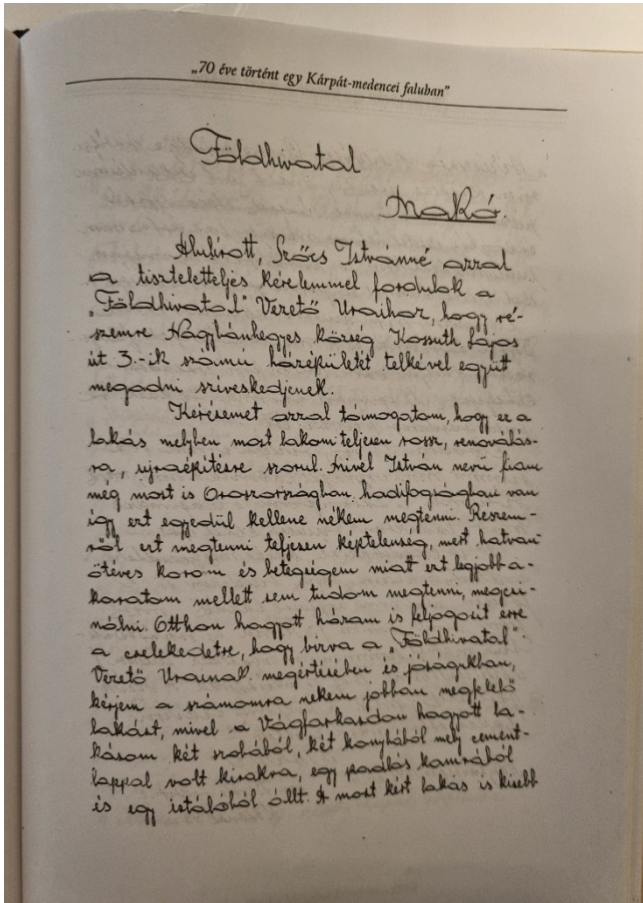 „70 éve történt egy Kárpát-medencei faluban”
Földhivatal
Makó.
Alulírott, Szőcs Istvánné azzal
a tiszteletteljes kérelemmel fordulok a
„Földhivatal” Vezető Uraihoz, hogy ré-
szemre Nagybánhegyes község Kossuth Lajos
út 3.-ik számú házépületét telkével együtt
megadni sziveskedjenek.
Kérésemet azzal támogatom, hogy ez a
lakás melyben most lakom teljesen rossz, renoválás-
ra, ujraépítésre szorul. Mivel István nevű fiam
még most is Oroszországban hadifogságban van
így ezt egyedül kellene nékem megtenni. Részem-
ről ezt megtenni teljesen képtelenség, mert hatvan-
ötéves korom és betegségem miatt ezt legjobb a-
karatom mellett sem tudom megtenni, megcsi-
nálni. Otthon hagyott házam is feljogosít erre
a cselekedetre, hogy bízva a „Földhivatal”
Vezető Urainak megértésében és jóságukban,
kérjem a számomra nekem jobban megfelelő
lakást, mivel a Vágfarkasdon hagyott la-
kásom két szobából, két konyhából mely cement-
lappal volt kirakva, egy padlós kamrából
és egy istálóból állt. A most kért lakás is kisebb